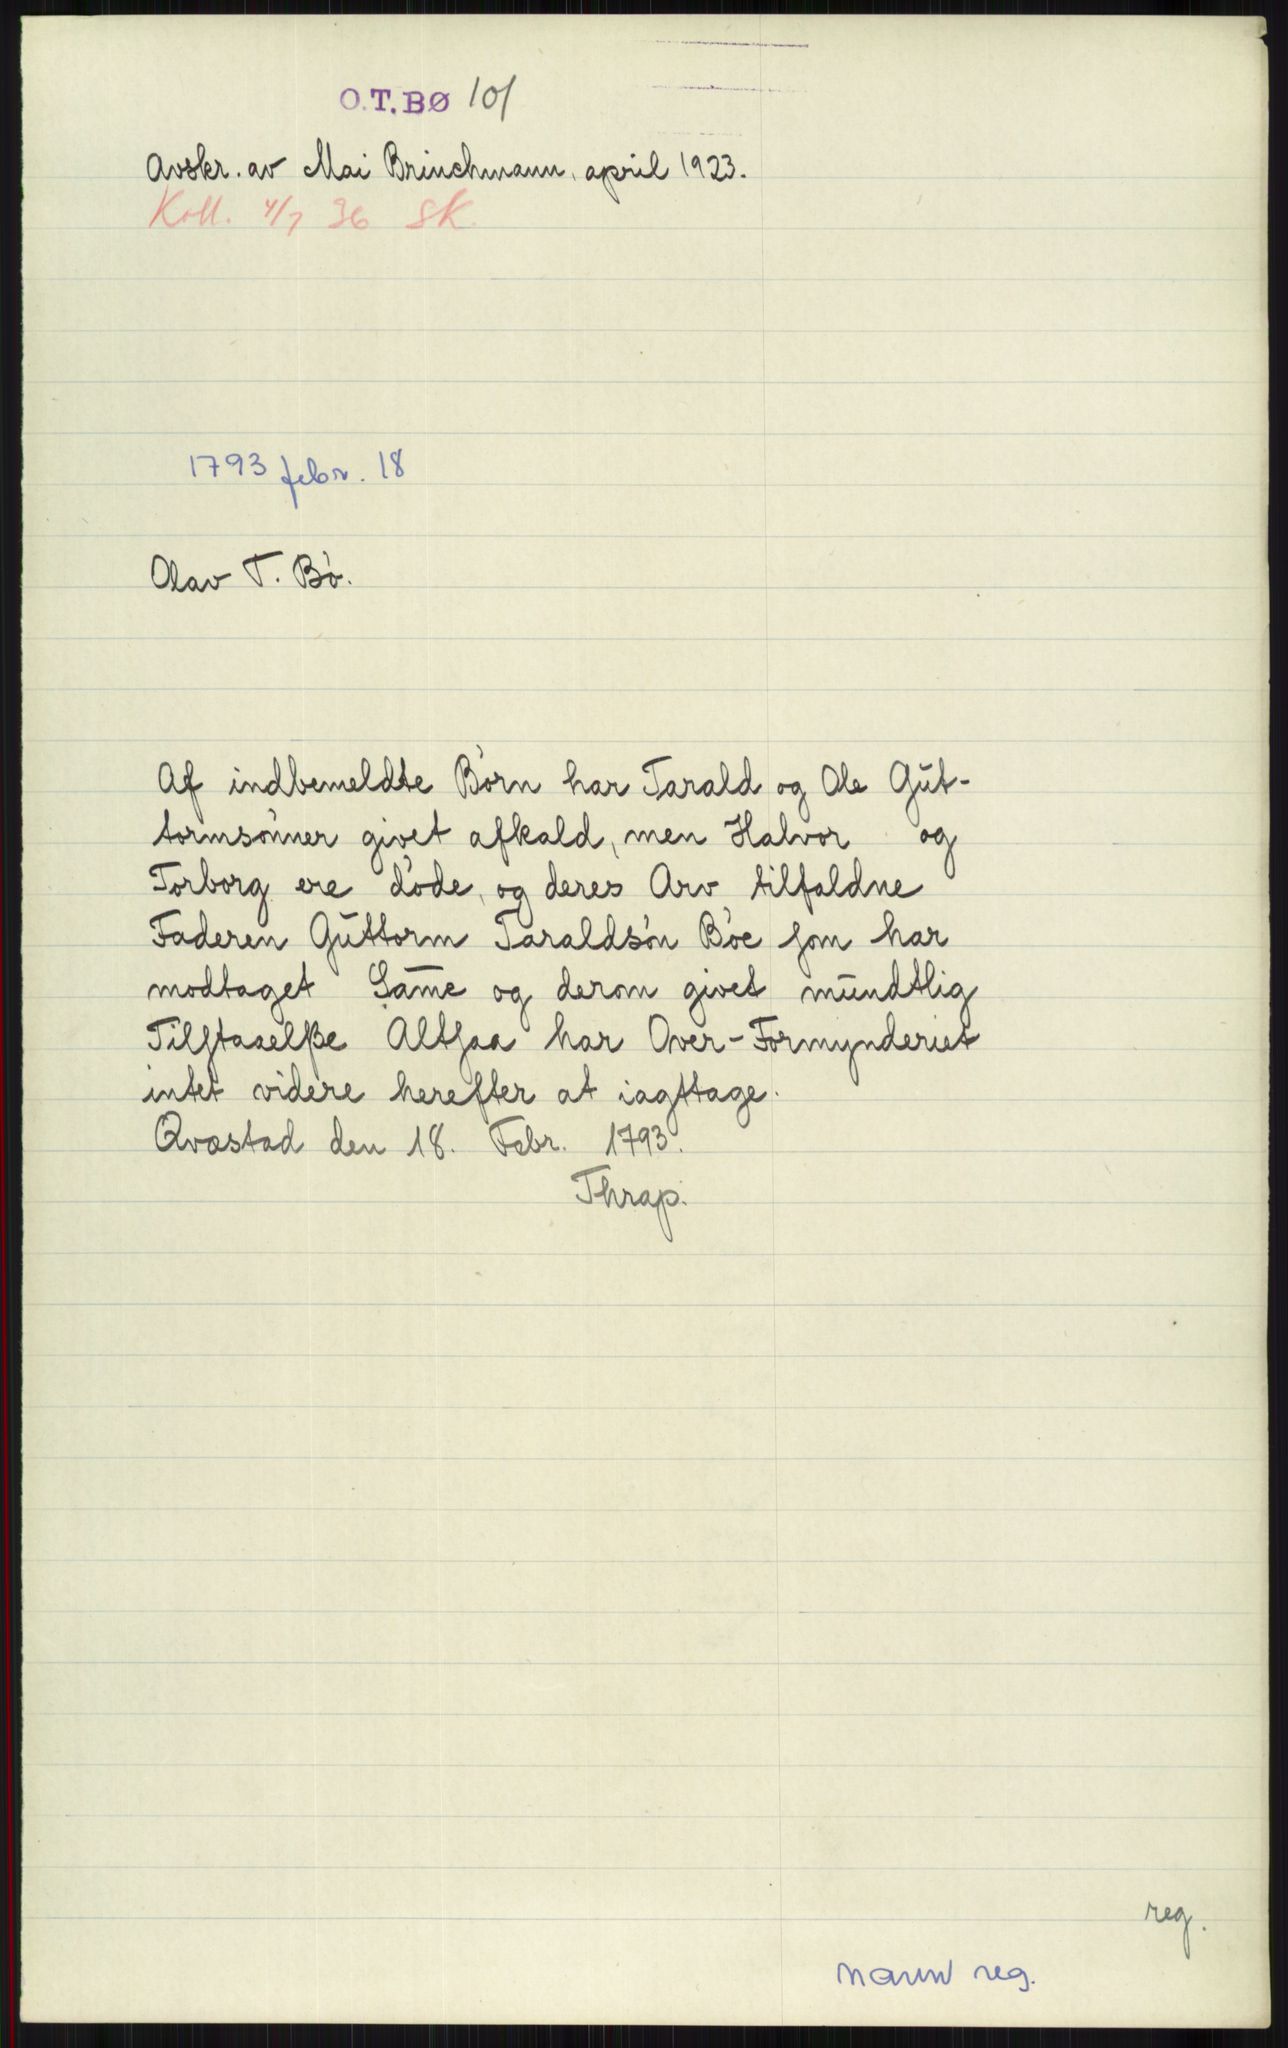 O.T.BØ 101
Avskr. av Mai Brinchmann, april 1923.
Koll. 4/7 36 SK.
1793 febr. 18
Olav T. Bö.
Af indbemeldte Börn har Tarald og Ole Gut-
tormsönner givet afkald, men Halvor og
Torborg ere döde, og deres Arv tilfaldne
Faderen Guttorm Taraldsön Böe som har
modtaget Samme og derom givet mundtlig
Tilstaaelße Altsaa har Over-Formynderiet
intet videre herefter at iagttage.
Qvæstad den 18. Febr. 1793.
Thrap.
reg.
navn reg.